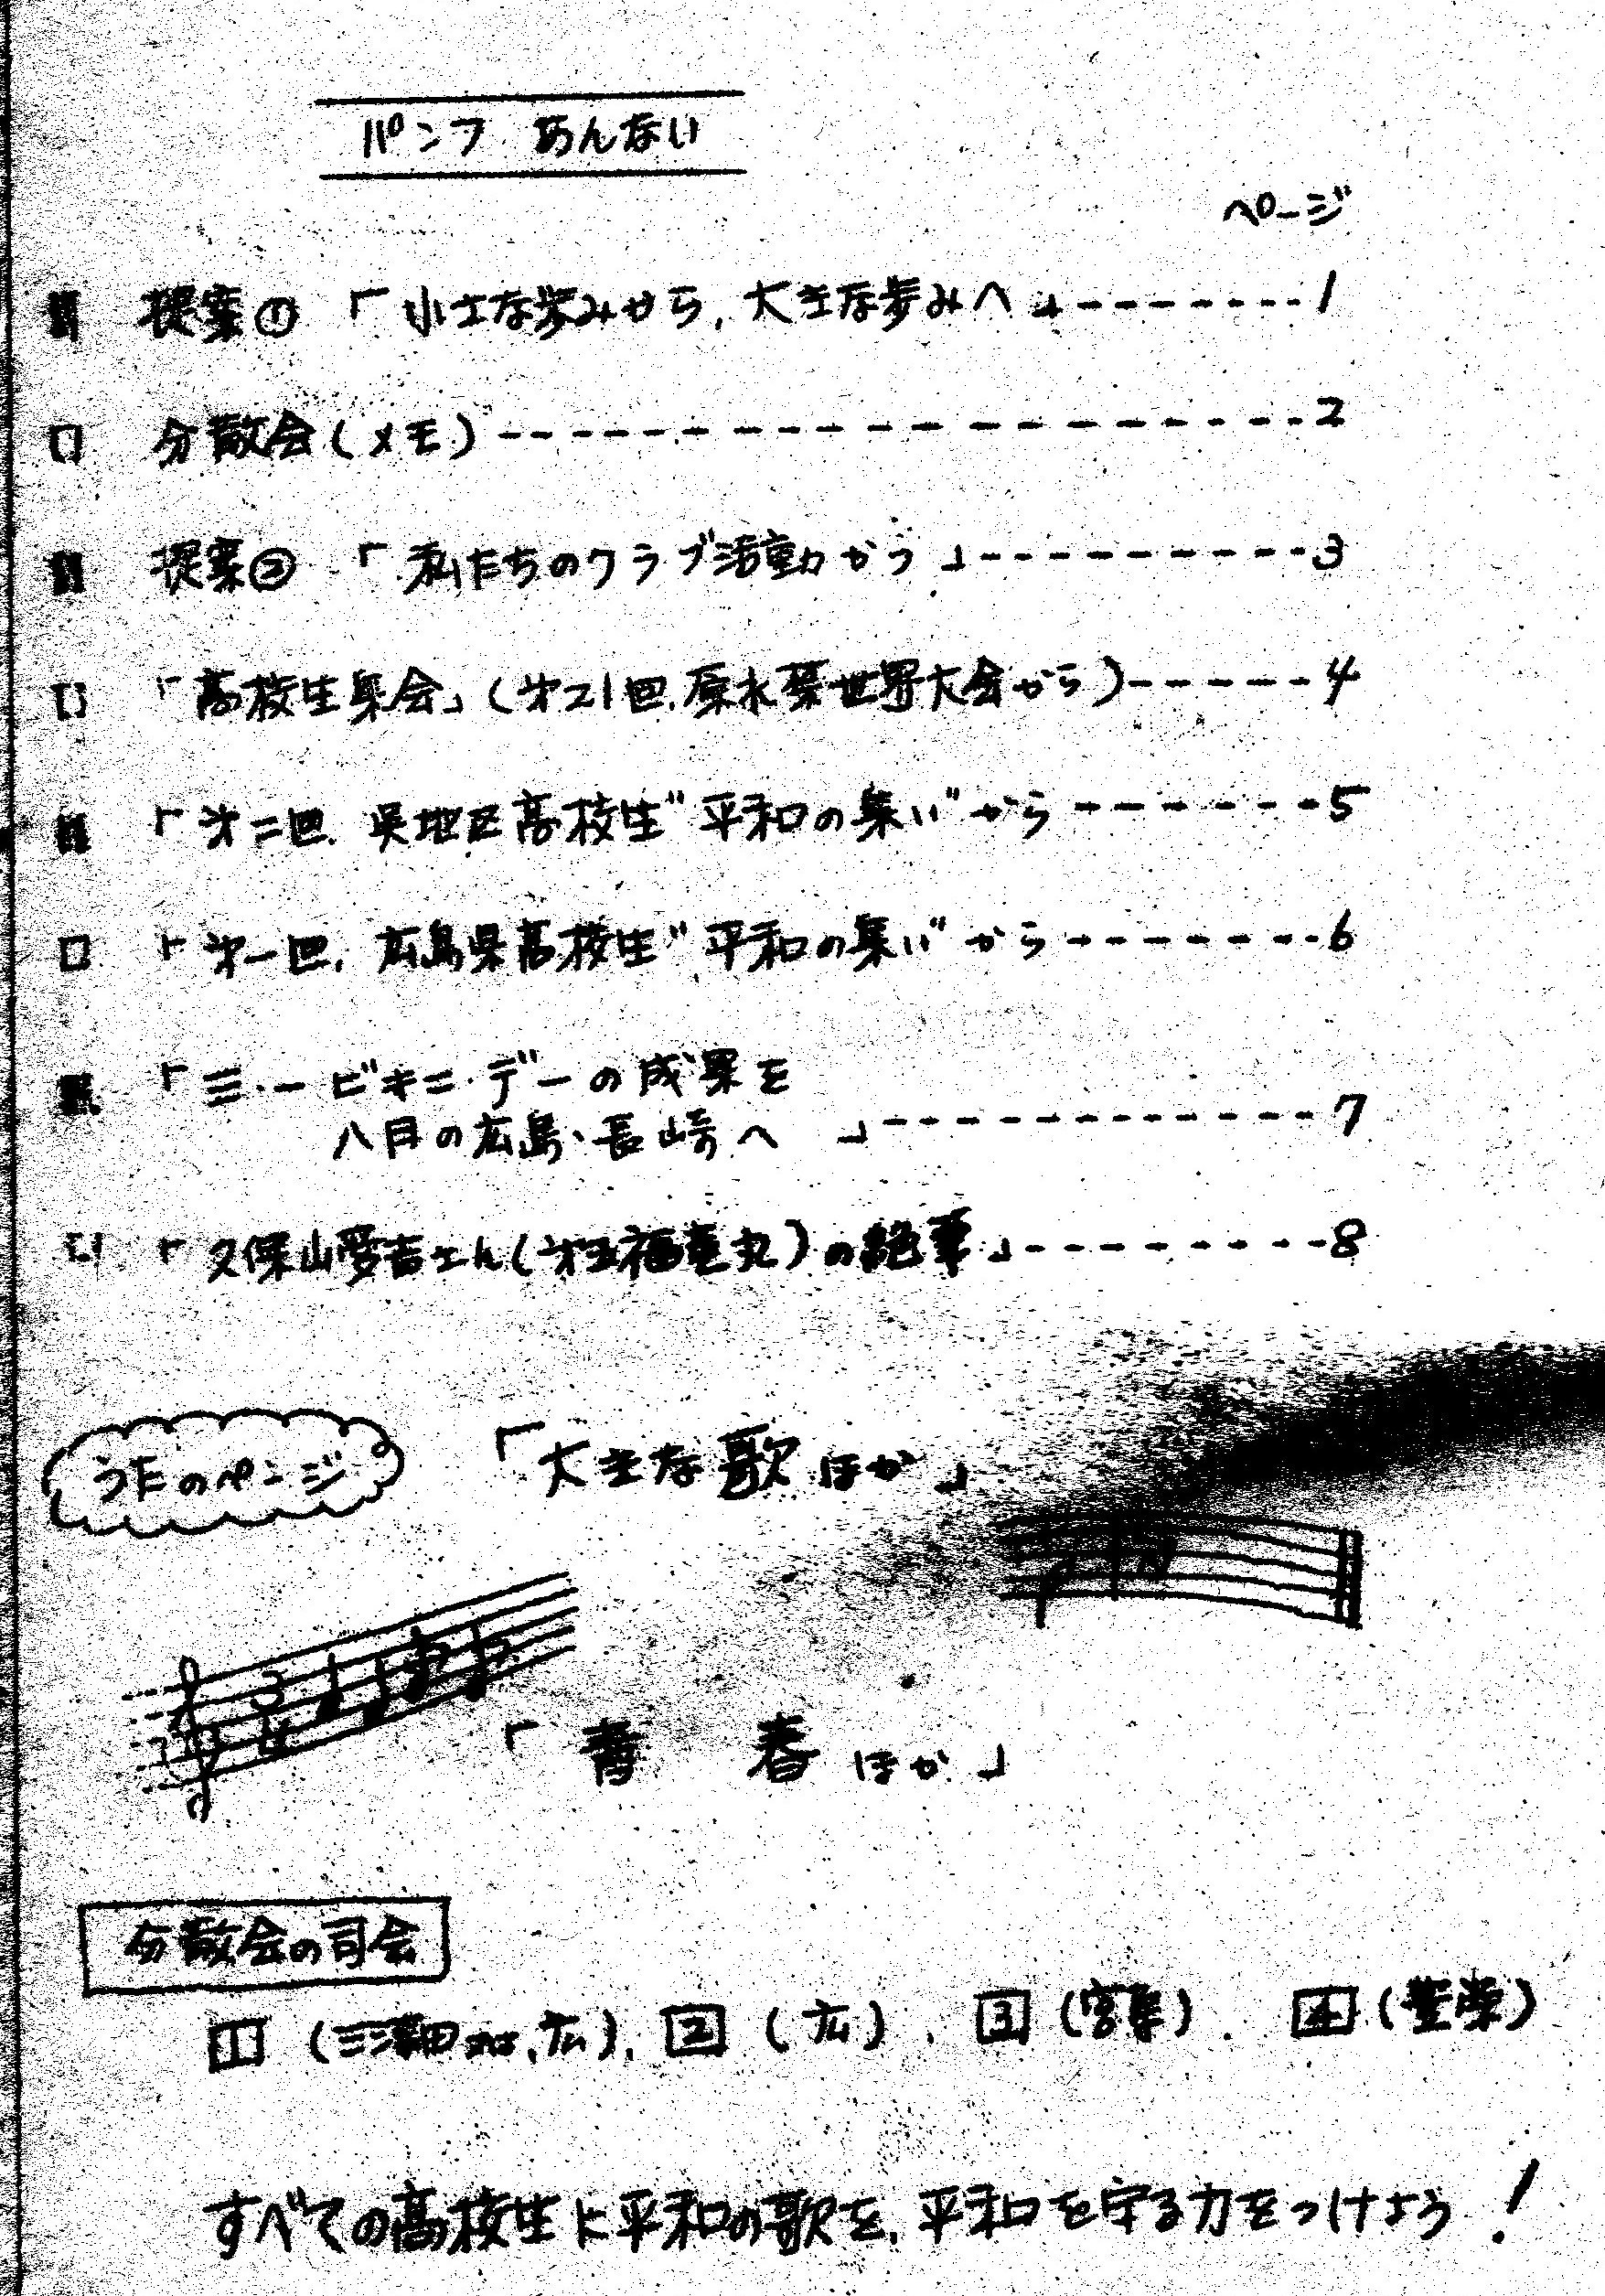 パンフ あんない
ページ
提案① 「小さな歩みから、大きな歩みへ」--------1
分散会(メモ)------------------2
提案② 「私たちのクラブ活動から」---------3
「高校生集会」(第21回.原水禁世界大会から)-----4
「第二回.呉地区高校生"平和の集い"から-------5
「第一回.広島県高校生"平和の集い"から-------6
「三・一ビキニ・デーの成果を
八月の広島、長崎へ 」-----------7
「久保山愛吉さん(第五福竜丸)の絶筆」--------8
うたのページ 「大きな歌 ほか」
3
4
「青 春 ほか」
分散会の司会
1 (広), 2 (広). 3 (宮原). 4 (豊栄)
すべての高校生に平和の歌を、平和を守る力をつけよう!